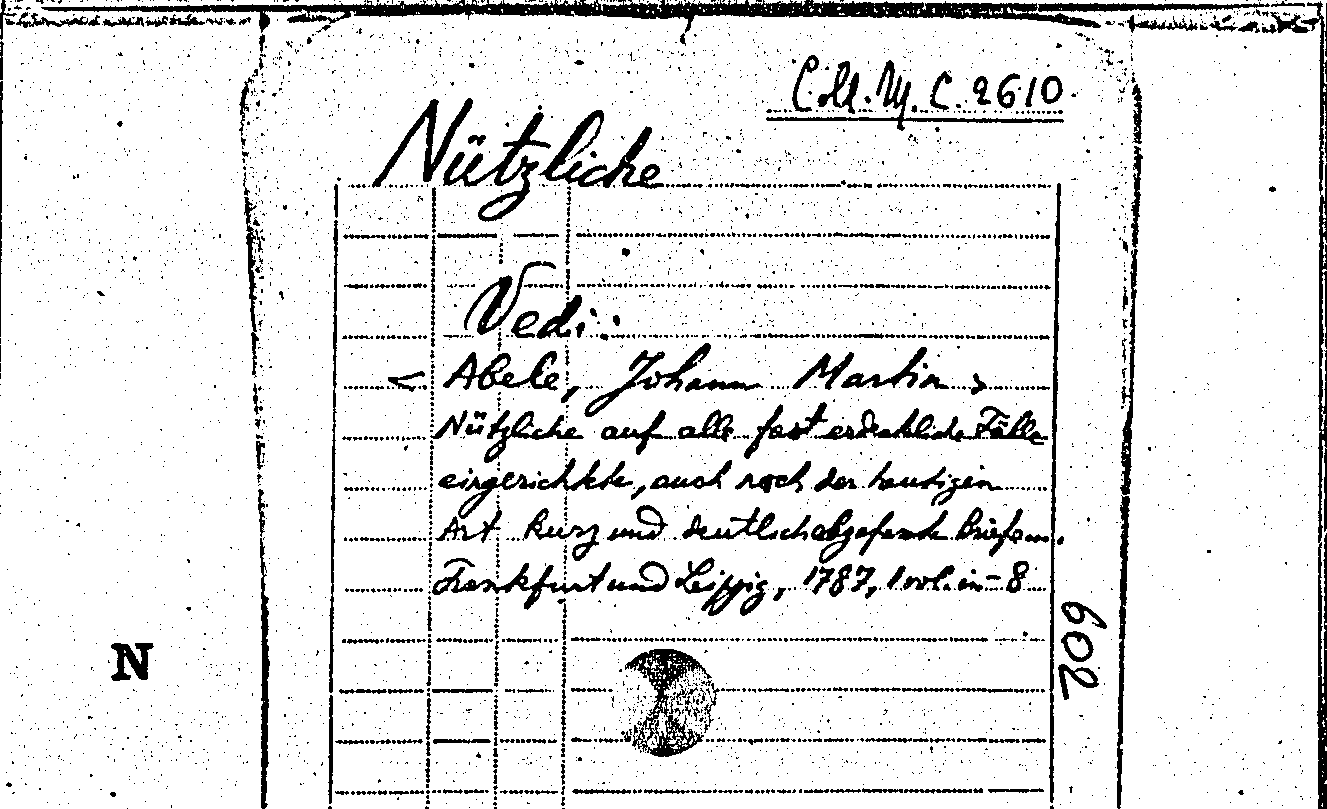 Coll. M. C. 2610
Nützliche
Vedi:
< Abele, Johann Martin >
Nützliche auf alle fast erdenkliche Fälle
eingerichtete, auch nach der heutigen
Art kurz und deutlich abgefasste Briefen.
Frankfurt und Leipzig, 1787, 1 vol. in-8
602
N